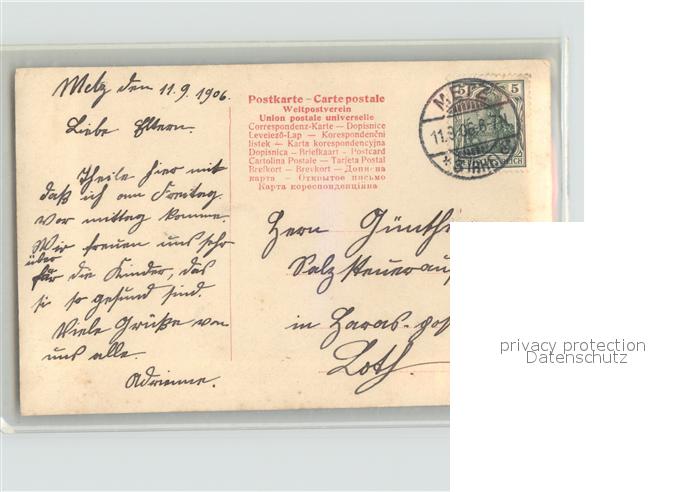 Metz den 11.9.1906.
Liebe Eltern.
Theile hier mit
daß ich am Freitag
vor mittag komme.
Wir freuen uns sehr
über
für die Kinder, das
sie so gesund sind.
Viele Grüße von
uns alle.
Adrienne.
Postkarte – Carte postale
Weltpostverein
Union postale universelle
Correspondenz-Karte – Dopisnice
Levelező-Lap – Korespondenční
lístek – Karta korespondencyjna
Dopisnica – Briefkaart – Postcard
Cartolina Postale – Tarjeta Postal
Brefkort – Brevkort – Дописна
карта – Открытое письмо
Карта кореспонденційна
METZ
11.9.06.6-7
5
REICH
Herrn Günth
Salzsteuerau
in Haras-pos
Loth.
privacy protection
Datenschutz